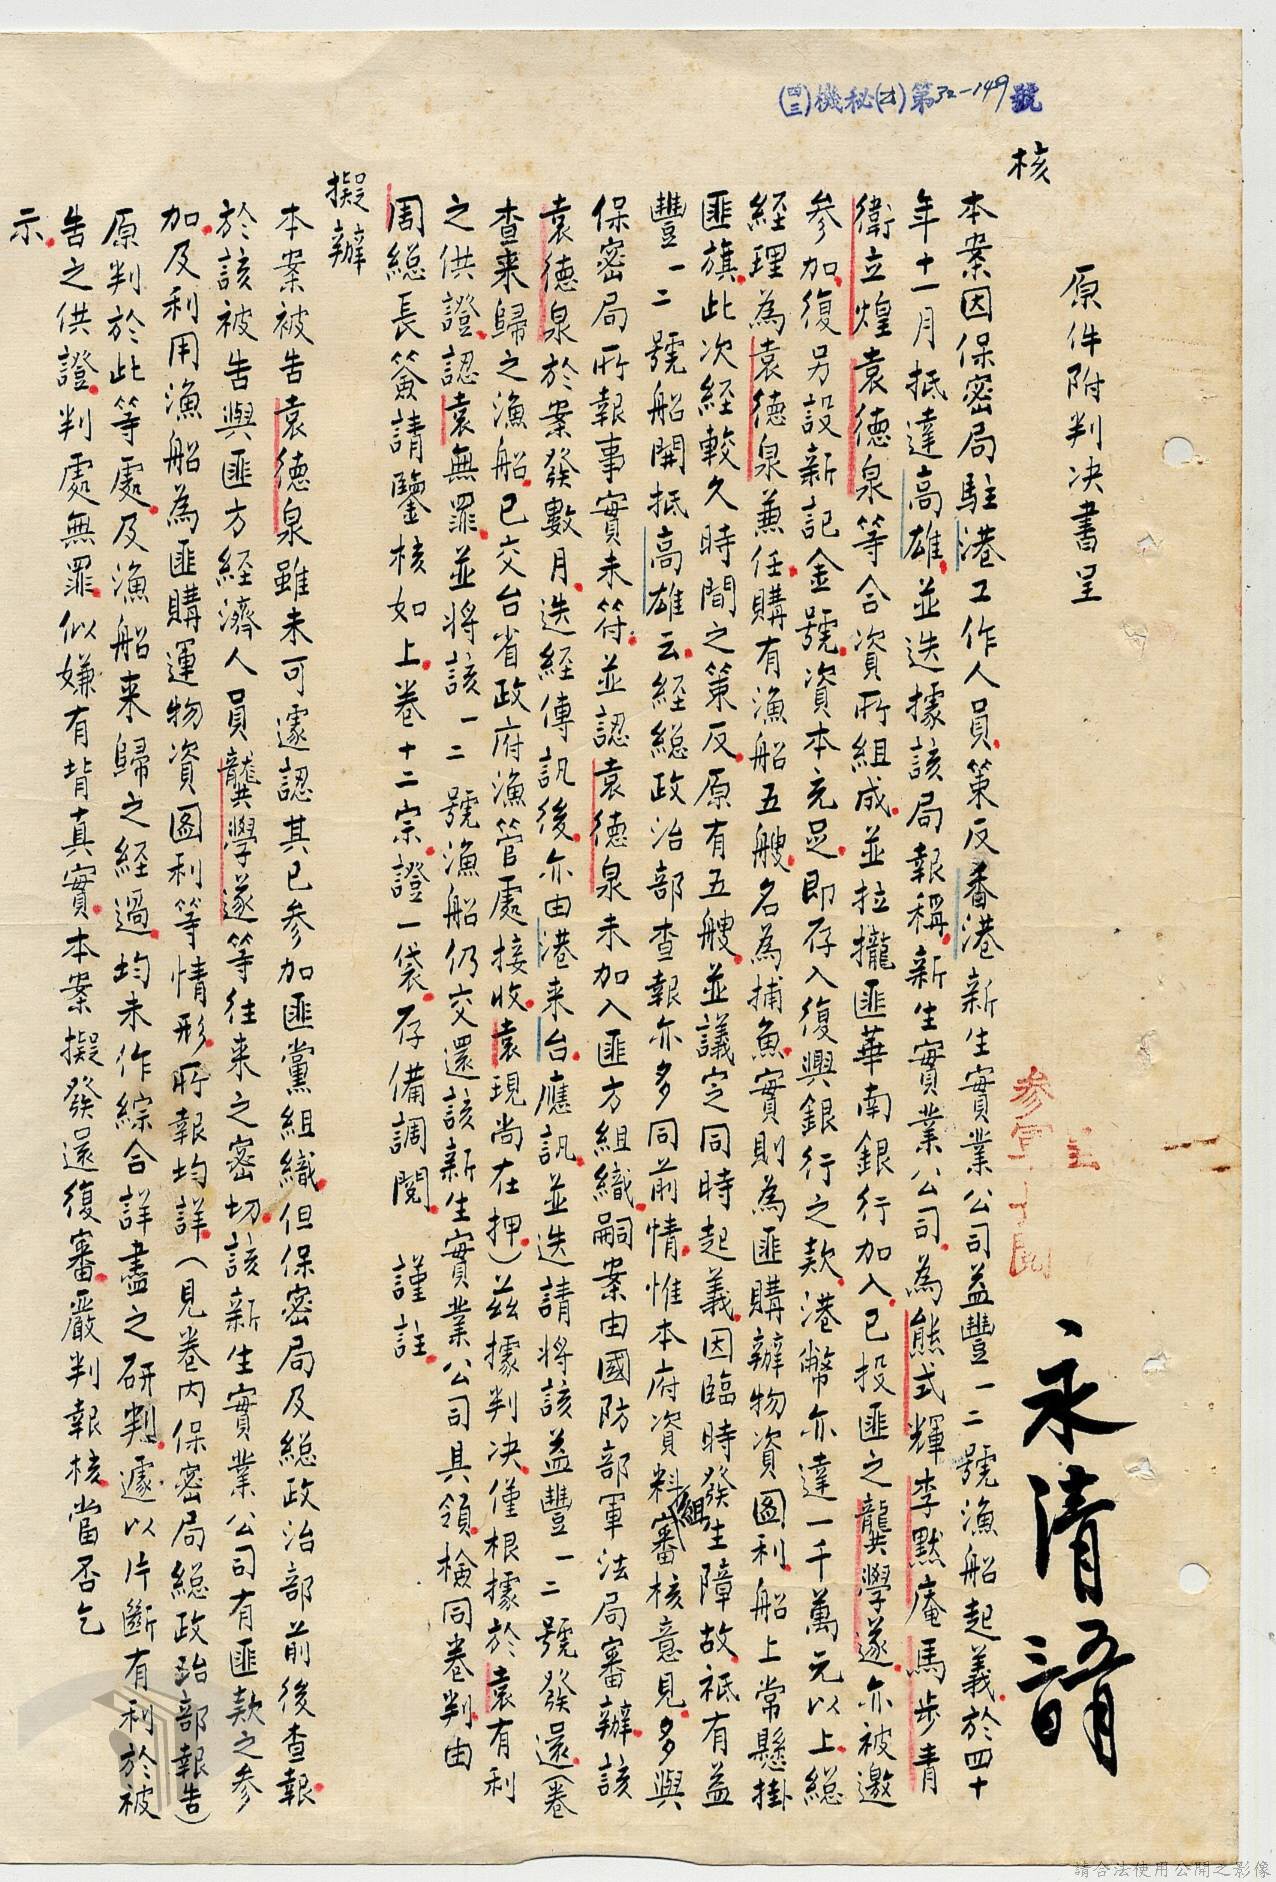 (四三)機秘(才)第32-149號
原件附判决書呈
核
本案因保密局駐港工作人員策反香港新生實業公司益豐一二號漁船起義於四十
年十一月抵達高雄並迭據該局報稱新生實業公司為熊式輝李默庵馬步青
衛立煌袁德泉等合資所組成並拉攏匪華南銀行加入已投匪之龔學遂亦被邀
參加復另設新記金號資本充足即存入復興銀行之款港幣亦達一千萬元以上總
經理為袁德泉兼任購有漁船五艘名為捕魚實則為匪購辦物資圖利船上常懸掛
匪旗此次經較久時間之策反原有五艘並議定同時起義因臨時發生障故祇有益
豐一二號船開抵高雄云經總政治部查報亦多同前情惟本府資料組審核意見多與
保密局所報事實未符並認袁德泉未加入匪方組織嗣案由國防部軍法局審辦該
袁德泉於案發數月迭經傳訊後亦由港来台應訊並迭請將該益豐一二號發還(卷
查来歸之漁船已交台省政府漁管處接收袁現尚在押)茲據判决僅根據於袁有利
之供證認袁無罪並將該一二號漁船仍交還該新生實業公司具領檢同卷判由
周總長簽請鑒核如上卷十二宗證一袋存備調閱　謹註
擬辦
本案被告袁德泉雖未可遽認其已參加匪黨組織但保密局及總政治部前後查報
於該被告與匪方經濟人員龔學遂等往来之密切該新生實業公司有匪款之參
加及利用漁船為匪購運物資圖利等情形所報均詳(見卷內保密局總政治部報告)
原判於此等處及漁船来歸之經過均未作綜合詳盡之研判遽以片斷有利於被
告之供證判處無罪似嫌有背真實本案擬發還復審嚴判報核當否乞
示
請合法使用公開之影像